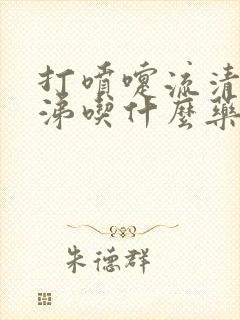 打喷嚏流清
涕喫什麼藥
朱德群